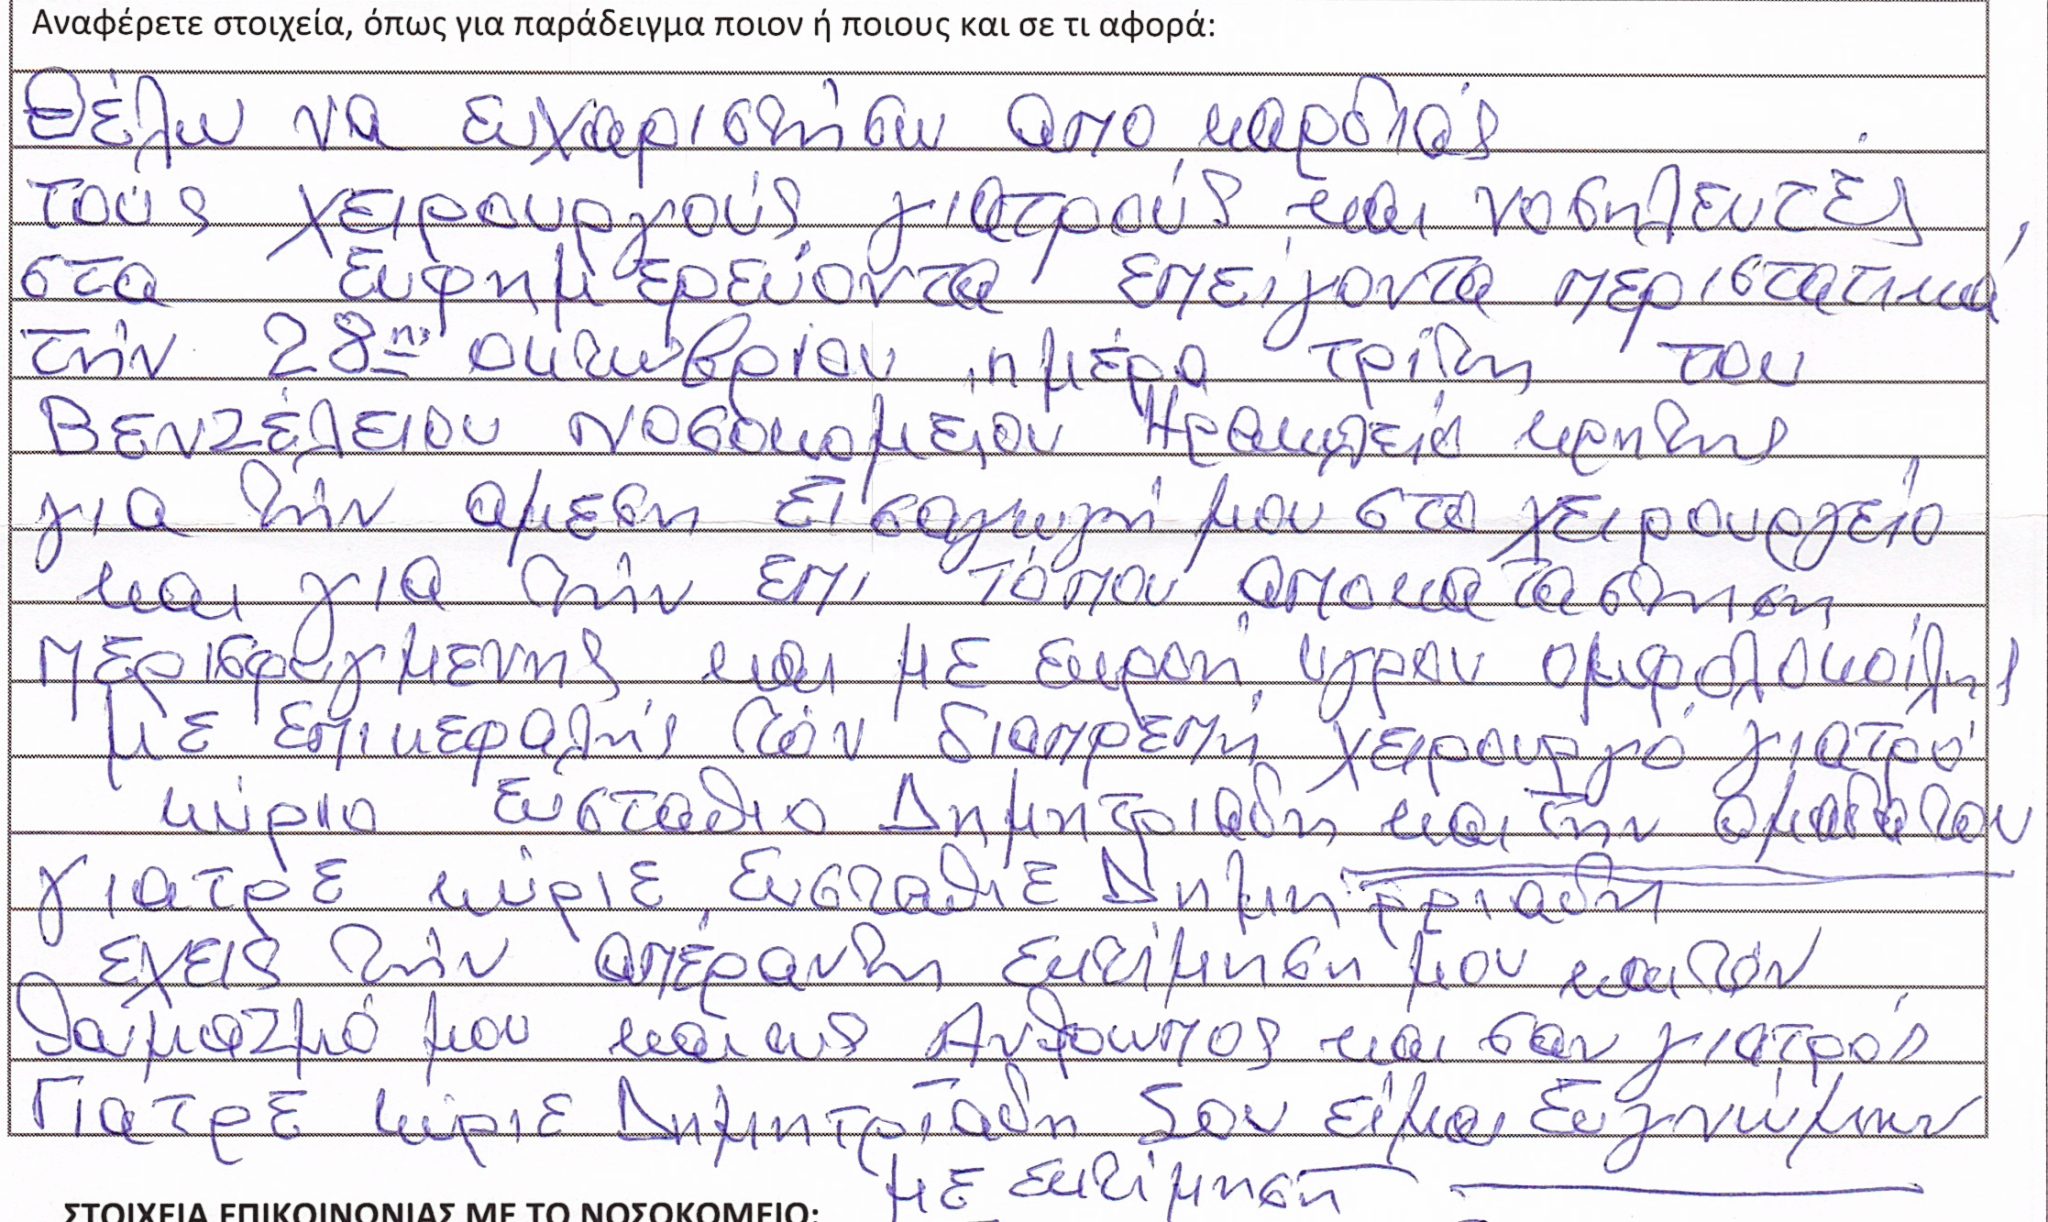 Αναφέρετε στοιχεία, όπως για παράδειγμα ποιον ή ποιους και σε τι αφορά:
Θέλω να ευχαριστήσω απο καρδιάς
τούς χειρουργούς γιατρούς και νοσηλευτές,
στα Εύφημερεύοντα επείγοντα περιστατικά
τήν 28ης οκτωβρίου ημέρα τρίτη του
Βενζέλειου νοσοκομείου Ηρακλειο κρητης
για τήν αμεση εισαγωγή μου στο χειρουργείο
και για τήν επι τόπου αποκατάστηση
περισφιγμενης και με εκροη υγρου ομφαλοκοίλης
με επικεφαλής τόν διαπρεπή χειρουργό γιατρό
κύριο Ευσταθιο Δημητριαδη και την ομαδα του
γιατρε κύριε Ευσταθιε Δημητρριαδη
εχεις τήν απέραντη εκτίμηση μου και τόν
θαυμαζμό μου και ως Ανθρωπος και σαν γιατρός
Γιατρε κύριε Δημητρίαδη Σου είμαι Ευγνώμων
με εκτίμηση
ΣΤΟΙΧΕΙΑ ΕΠΙΚΟΙΝΩΝΙΑΣ ΜΕ ΤΟ ΝΟΣΟΚΟΜΕΙΟ: